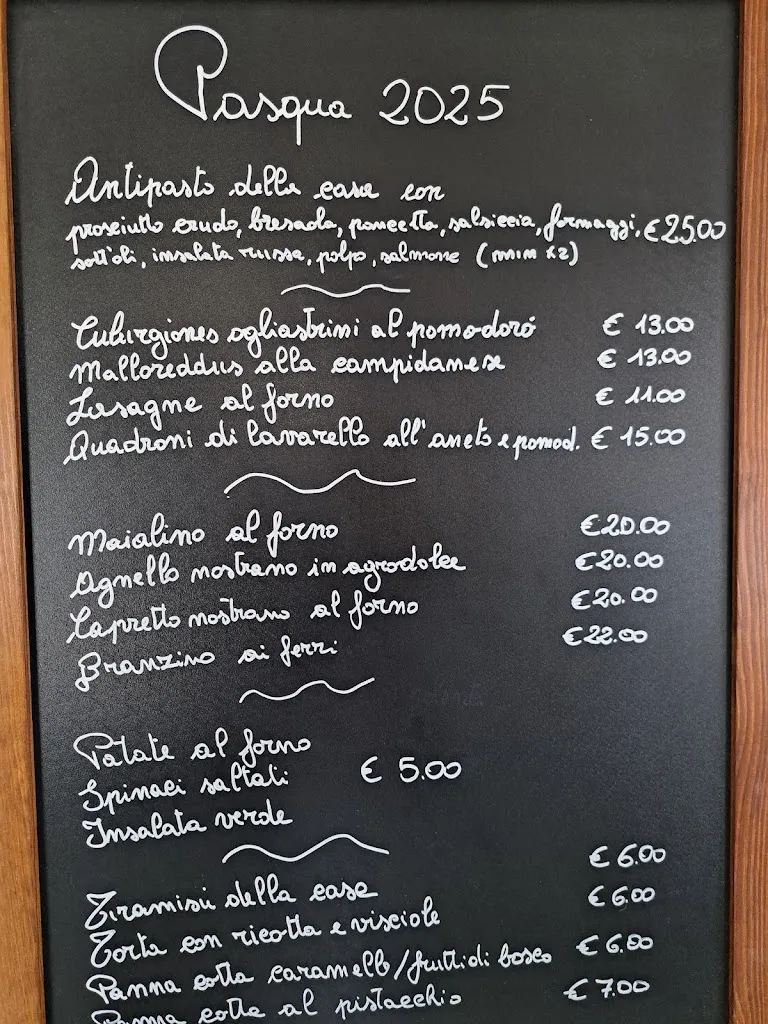 Pasqua 2025
Antipasto della casa con
prosciutto crudo, bresaola, pancetta, salsiccia, formaggi, €25.00
sott'oli, insalata russa, polpo, salmone (min x2)
Culurgiones ogliastrini al pomodoro € 13.00
Malloreddus alla campidanese € 13.00
Lasagne al forno € 11.00
Quadroni di lavarello all'aneto e pomod. € 15.00
Maialino al forno €20.00
Agnello nostrano in agrodolce €20.00
Capretto nostrano al forno €20.00
Branzino ai ferri €22.00
Patate al forno
Spinaci saltati € 5.00
Insalata verde
Tiramisù della casa € 6.00
Torta con ricotta e visciole € 6.00
Panna cotta caramello/frutti di bosco € 6.00
Panna cotta al pistacchio € 7.00